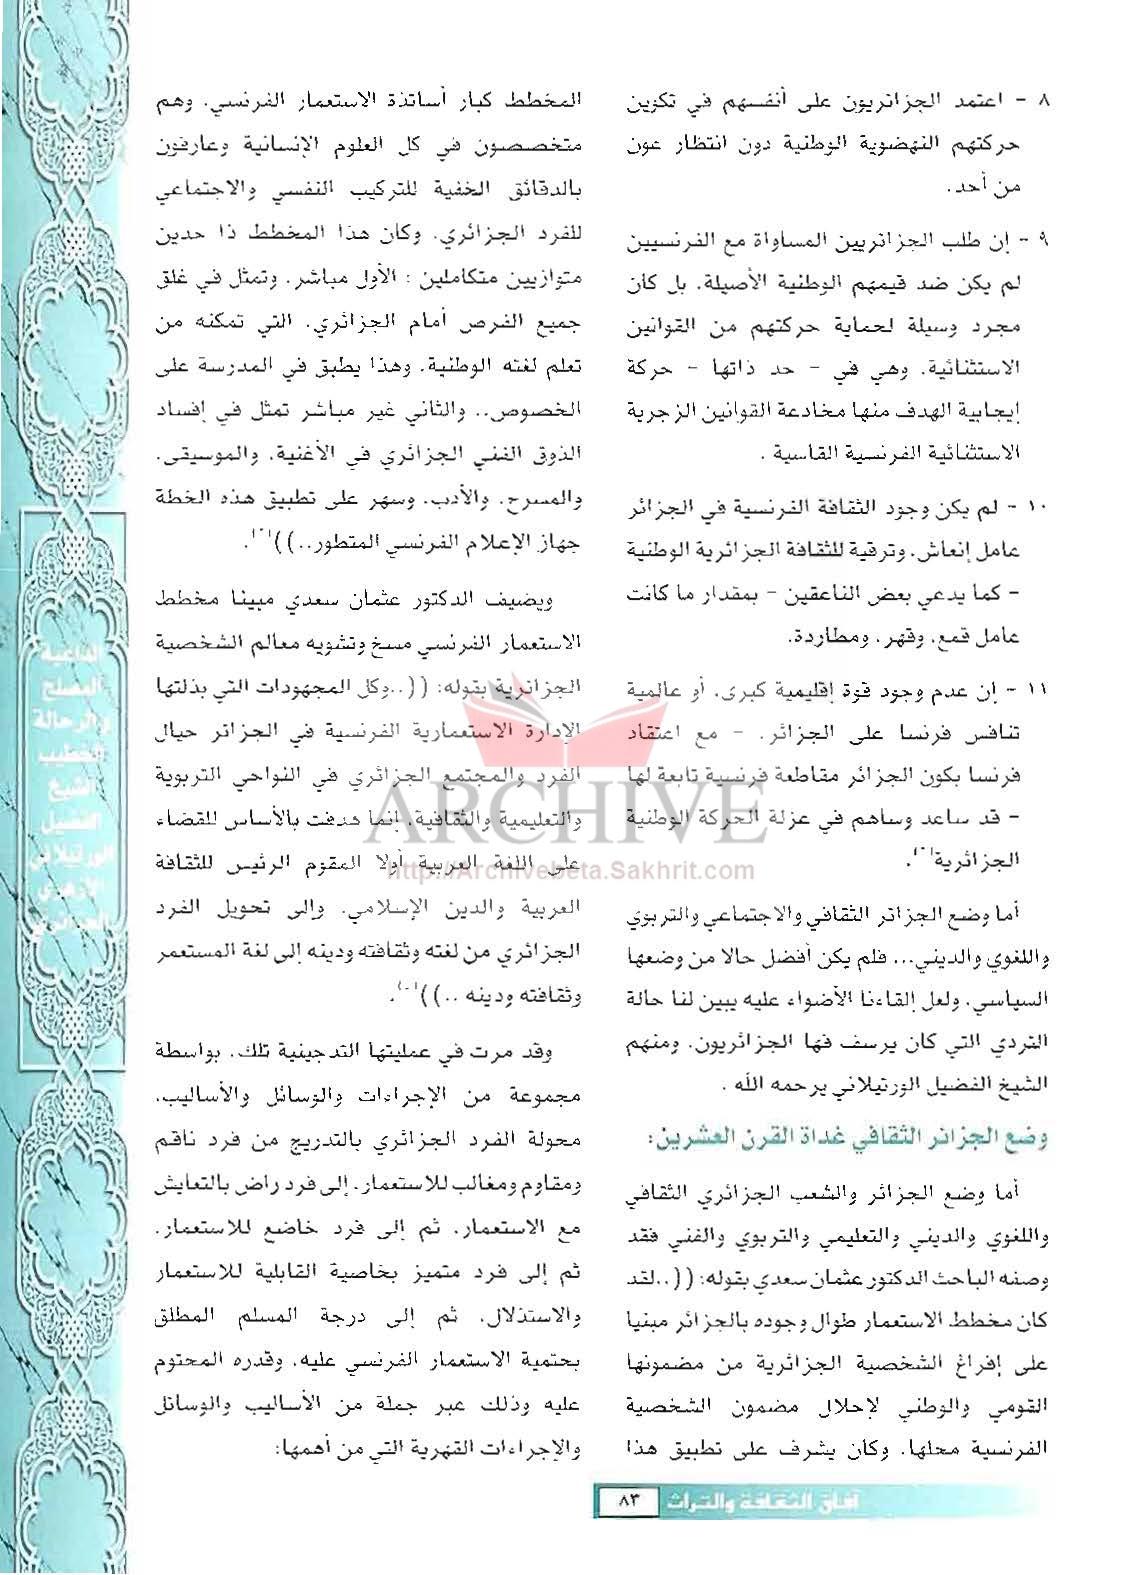 ٨ - اعتمد الجزائريون على أنفسهم في تكوين
حركتهم النهضوية الوطنية دون انتظار عون
من أحد.
٩ - إن طلب الجزائريين المساواة مع الفرنسيين
لم يكن ضد قيمهم الوطنية الأصيلة. بل كان
مجرد وسيلة لحماية حركتهم من القوانين
الاستثنائية. وهي في - حد ذاتها - حركة
إيجابية الهدف منها مخادعة القوانين الزجرية
الاستثنائية الفرنسية القاسية .
١٠ - لم يكن وجود الثقافة الفرنسية في الجزائر
عامل إنعاش. وترقية للثقافة الجزائرية الوطنية
- كما يدعي بعض الناعقين - بمقدار ما كانت
عامل قمع. وقهر. ومطاردة.
١١ - إن عدم وجود قوة إقليمية كبرى. أو عالمية
تنافس فرنسا على الجزائر. - مع اعتقاد
فرنسا بكون الجزائر مقاطعة فرنسية تابعة لها
- قد ساعد وساهم في عزلة الحركة الوطنية
الجزائرية.
أما وضع الجزائر الثقافي والاجتماعي والتربوي
واللغوي والديني... فلم يكن أفضل حالا من وضعها
السياسي. ولعل إلقاءنا الأضواء عليه يبين لنا حالة
التردي التي كان يرسف فها الجزائريون. ومنهم
الشيخ الفضيل الورتيلاني يرحمه الله .
وضع الجزائر الثقافي غداة القرن العشرين:
أما وضع الجزائر والشعب الجزائري الثقافي
واللغوي والديني والتعليمي والتربوي والفني فقد
وصفه الباحث الدكتور عثمان سعدي بقوله: ((..لقد
كان مخطط الاستعمار طوال وجوده بالجزائر مبنيا
على إفراغ الشخصية الجزائرية من مضمونها
القومي والوطني لإحلال مضمون الشخصية
الفرنسية محلها. وكان يشرف على تطبيق هذا
المخطط كبار أساتذة الاستعمار الفرنسي. وهم
متخصصون في كل العلوم الإنسانية وعارفون
بالدقائق الخفية للتركيب النفسي والاجتماعي
للفرد الجزائري. وكان هذا المخطط ذا حدين
متوازيين متكاملين : الأول مباشر. وتمثل في غلق
جميع الفرص أمام الجزائري. التي تمكنه من
تعلم لغته الوطنية. وهذا يطبق في المدرسة على
الخصوص.. والثاني غير مباشر تمثل في إفساد
الذوق الفني الجزائري في الأغنية. والموسيقى.
والمسرح. والأدب. وسهر على تطبيق هذه الخطة
جهاز الإعلام الفرنسي المتطور..)).
ويضيف الدكتور عثمان سعدي مبينا مخطط
الاستعمار الفرنسي مسخ وتشويه معالم الشخصية
الجزائرية بقوله: ((..وكل المجهودات التي بذلتها
الإدارة الاستعمارية الفرنسية في الجزائر حيال
الفرد والمجتمع الجزائري في النواحي التربوية
والتعليمية والثقافية. إنما هدفت بالأساس للقضاء
على اللغة العربية أولا المقوم الرئيس للثقافة
العربية والدين الإسلامي. وإلى تحويل الفرد
الجزائري من لغته وثقافته ودينه إلى لغة المستعمر
وثقافته ودينه ..)).
وقد مرت في عمليتها التدجينية تلك. بواسطة
مجموعة من الإجراءات والوسائل والأساليب.
محولة الفرد الجزائري بالتدريج من فرد ناقم
ومقاوم ومغالب للاستعمار. إلى فرد راض بالتعايش
مع الاستعمار. ثم إلى فرد خاضع للاستعمار.
ثم إلى فرد متميز بخاصية القابلية للاستعمار
والاستذلال. ثم إلى درجة المسلم المطلق
بحتمية الاستعمار الفرنسي عليه. وقدره المحتوم
عليه وذلك عبر جملة من الأساليب والوسائل
والإجراءات القهرية التي من أهمها:
الداعية
المصلح
والرحالة
الخطيب
الشيخ
الفضيل
الورتيلاني
الأزهري
الجزائري
ARCHIVE
http://Archivebeta.Sakhrit.com
آفاق الثقافة والتراث ٨٣